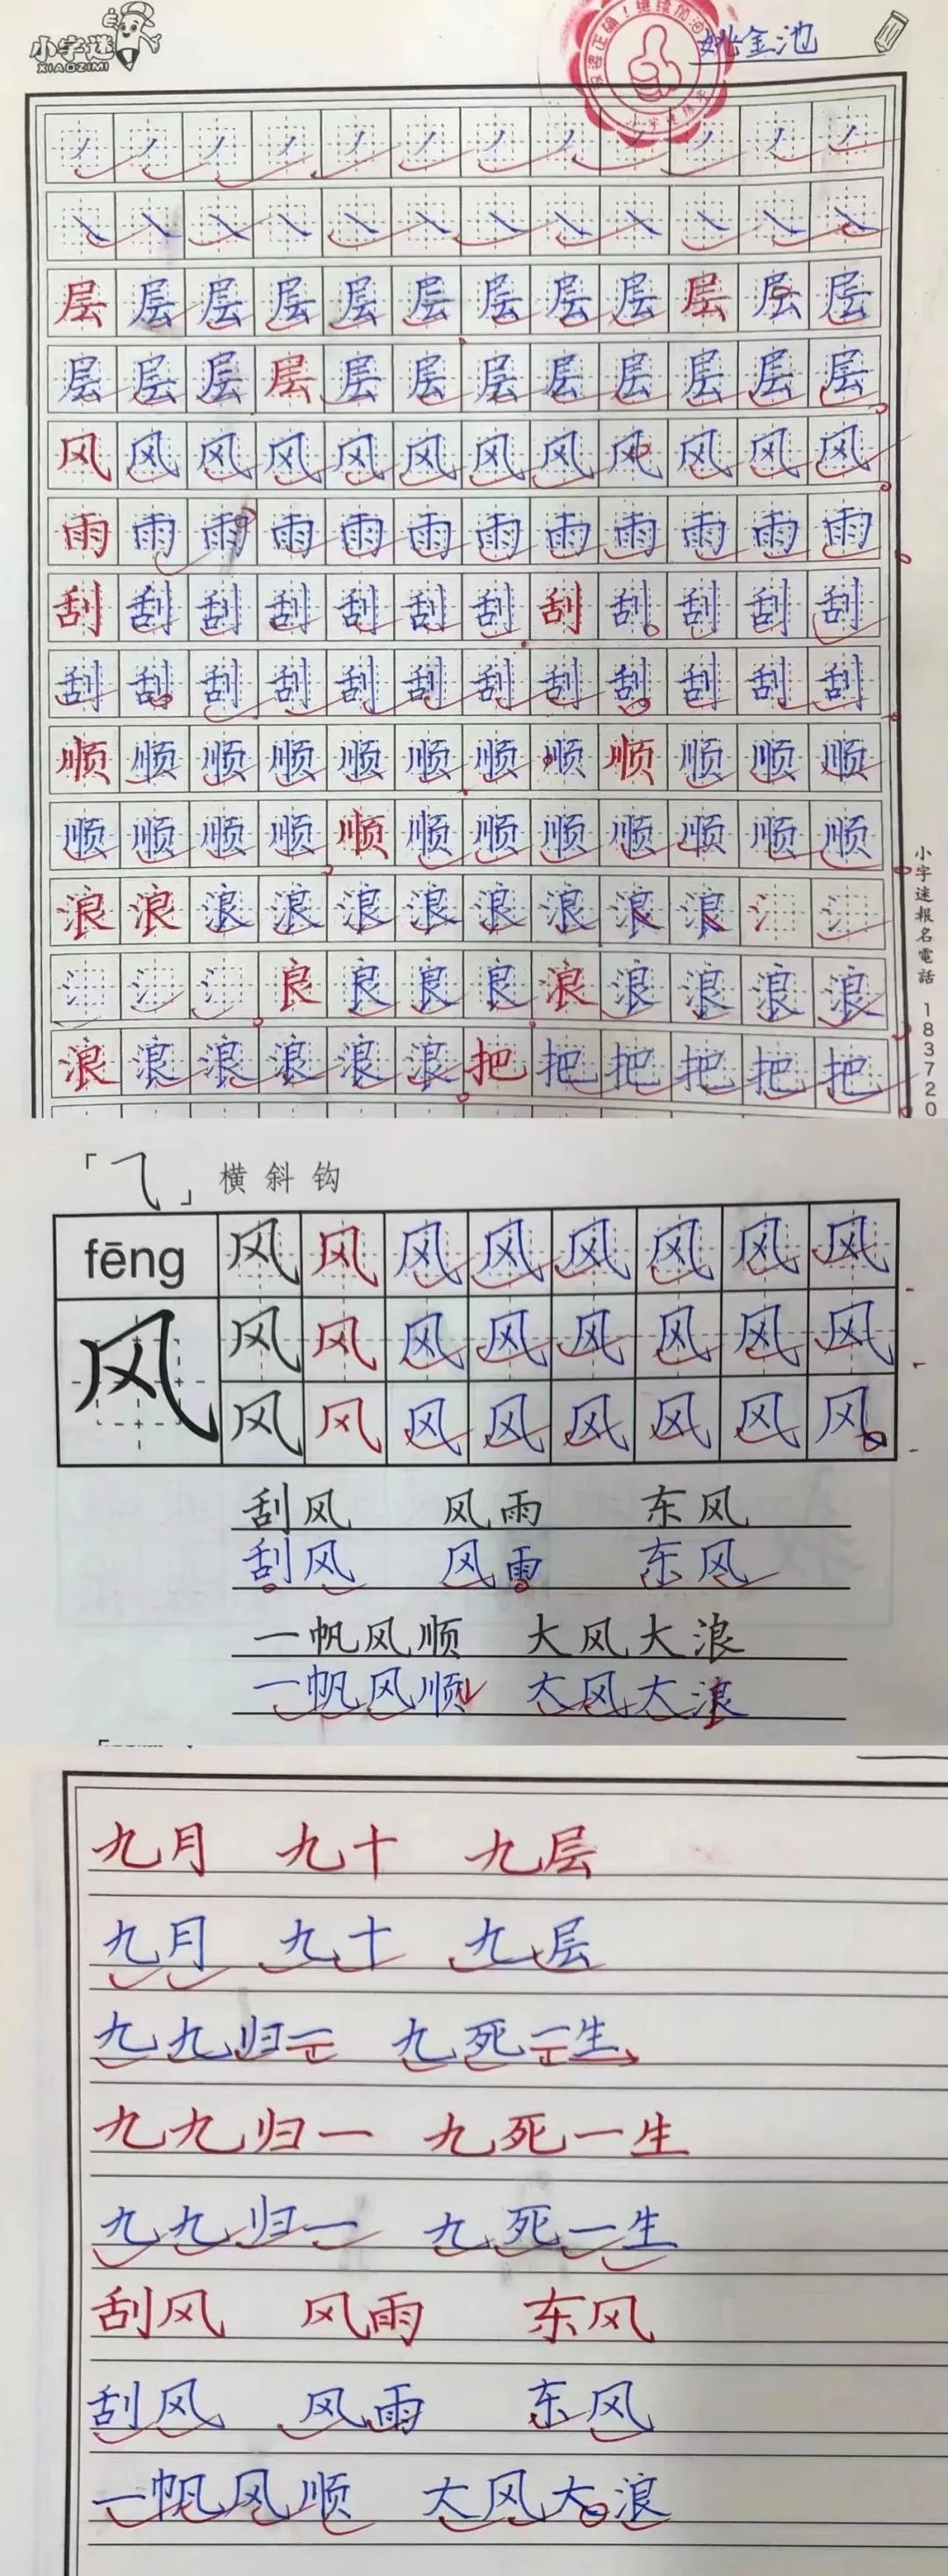 小字迷
XIAOZIMI
姚金池
丿丿丿丿丿丿丿丿丿丿丿丿
㇏㇏㇏㇏㇏㇏㇏㇏㇏㇏㇏㇏
层层层层层层层层层层层层
层层层层层层层层层层层层
风风风风风风风风风风风风
雨雨雨雨雨雨雨雨雨雨雨雨
刮刮刮刮刮刮刮刮刮刮刮刮
刮刮刮刮刮刮刮刮刮刮刮刮
顺顺顺顺顺顺顺顺顺顺顺顺
顺顺顺顺顺顺顺顺顺顺顺顺
浪浪浪浪浪浪浪浪浪浪氵氵
氵氵氵良良良良浪浪浪浪浪
浪浪浪浪浪浪把把把把把把
小字迷報名電話 183720
「⺄」横斜钩
fēng 风风风风风风风风
风 风风风风风风风风
风风风风风风风风
刮风 风雨 东风
刮风 风雨 东风
一帆风顺 大风大浪
一帆风顺 大风大浪
九月 九十 九层
九月 九十 九层
九九归一 九死一生
九九归一 九死一生
九九归一 九死一生
刮风 风雨 东风
刮风 风雨 东风
一帆风顺 大风大浪